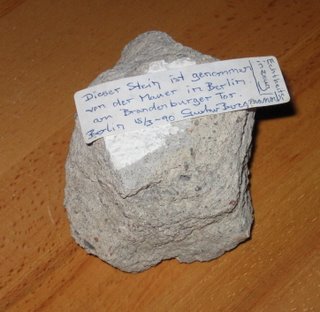 Dieser Stein ist genommen
von der Mauer in Berlin.
am Brandenburger Tor.
Berlin 15/3-90 Gustav Bergmann
Echtheits